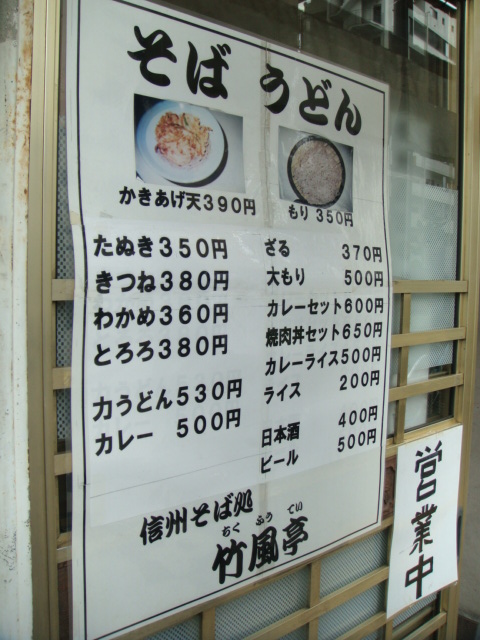 そば うどん
かきあげ天390円
もり 350円
たぬき350円
きつね380円
わかめ360円
とろろ380円
力うどん530円
カレー 500円
ざる 370円
大もり 500円
カレーセット600円
焼肉丼セット650円
カレーライス500円
ライス 200円
日本酒 400円
ビール 500円
信州そば処
ちく ふう てい
竹風亭
営業中